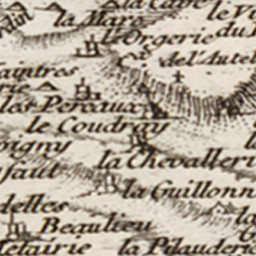 la Cave
le Vi
din
la Mare
l'Orgerie
du
de l'Autel
aintres
rie
les Pereaux
le Coudray
igny
la Chevalleri
faut
la Guillonn
delles
la
Beaulieu
Metairie
la Pilauderie